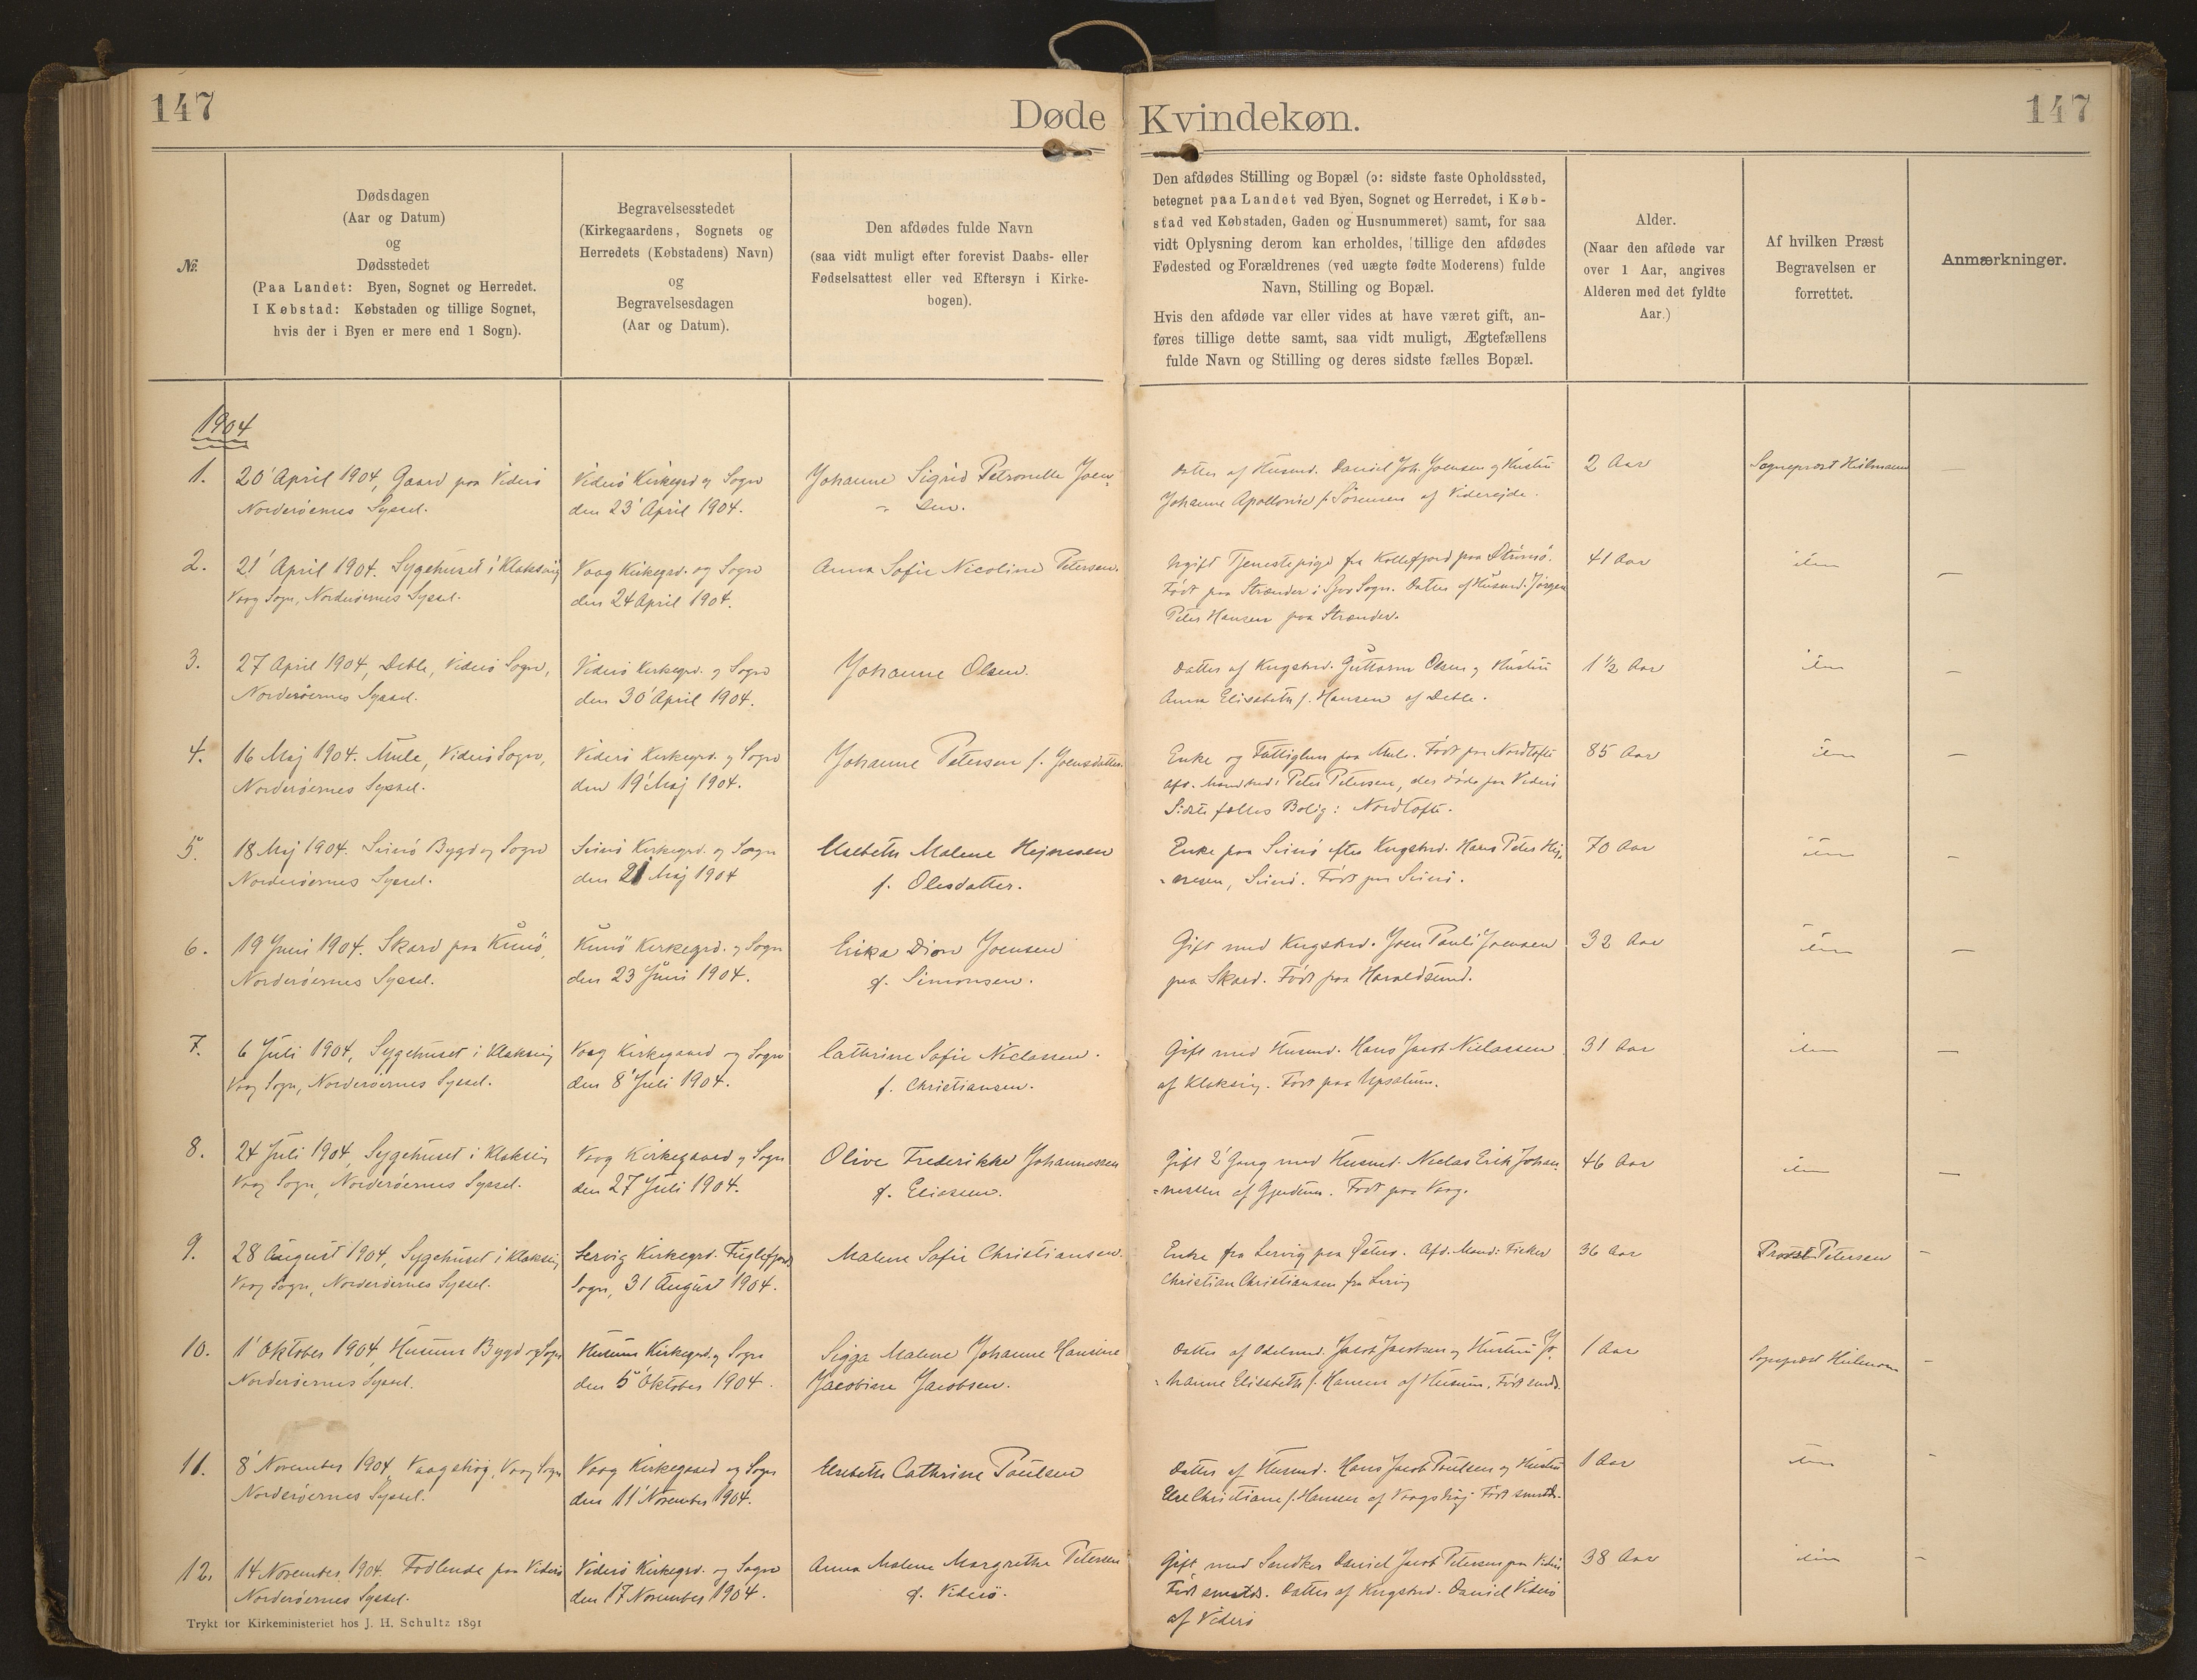 147
Døde
Kvindekøn.
147
№.
Dødsdagen
(Aar og Datum)
og
Dødsstedet
(Paa Landet: Byen, Sognet og Herredet.
I Købstad: Købstaden og tillige Sognet,
hvis der i Byen er mere end 1 Sogn).
Begravelsesstedet
(Kirkegaardens, Sognets og
Herredets (Købstadens) Navn)
og
Begravelsesdagen
(Aar og Datum).
Den afdødes fulde Navn
(saa vidt muligt efter forevist Daabs- eller
Fødselsattest eller ved Eftersyn i Kirke-
bogen).
Den afdødes Stilling og Bopæl (ɔ: sidste faste Opholdssted,
betegnet paa Landet ved Byen, Sognet og Herredet, i Køb-
stad ved Købstaden, Gaden og Husnummeret) samt, for saa
vidt Oplysning derom kan erholdes, tillige den afdødes
Fødested og Forældrenes (ved uægte fødte Moderens) fulde
Navn, Stilling og Bopæl.
Hvis den afdøde var eller vides at have været gift, an-
føres tillige dette samt, saa vidt muligt, Ægtefællens
fulde Navn og Stilling og deres sidste fælles Bopæl.
Alder.
(Naar den afdøde var
over 1 Aar, angives
Alderen med det fyldte
Aar.)
Af hvilken Præst
Begravelsen er
forrettet.
Anmærkninger.
1904
1.
20' April 1904, Gaard paa Viderö
Norderöernes Syssel.
Viderö Kirkegrd og Sogn
den 23' April 1904.
Johanne Sigrid Petronelle Joen-
- sen.
Datter af Husmd. Daniel Joh. Joensen og Hustru
Johanne Apollonie f. Sörensen af Viderejde.
2 Aar
Sognepræst Heilmann
2.
21' April 1904. Sygehuset i Klaksvig
Vaag Sogn, Norderöernes Syssel.
Vaag Kirkegrd. og Sogn
den 24 April 1904.
Anna Sofie Nicoline Petersen.
Ugift Tjenestepige fra Kollefjord paa Strömö.
Född paa Strænder i Sjov Sogn. Datter af Husmd. Jörgen
Peter Hansen paa Strænder.
41 Aar
idem
—
3.
27 April 1904, Deble, Viderö Sogn,
Norderöernes Syssel.
Viderö Kirkegrd. og Sogn
den 30' April 1904.
Johanne Olsen.
Datter af Kngsbrd. Guttorm Olsen og Hustru
Anna Elisabeth f. Hansen af Deble.
1 ½ Aar
idem
—
4.
16 Maj 1904. Mule, Viderö Sogn,
Norderöernes Syssel.
Viderö Kirkegrd. og Sogn
den 19' Maj 1904.
Johanne Petersen f. Joensdatter.
Enke og Fattiglem paa Mule. Född paa Nordtofte
afd. Mand: Peter Petersen, der döde paa Viderö
Sidste fælles Bolig: Nordtofte.
85 Aar
idem
—
5.
18 Maj 1904. Svinö Bygd og Sogn
Norderöernes Syssel.
Svinö Kirkegrd. og Sogn
den 21 Maj 1904
Elsebeth Malene Hejnesen
f. Olesdatter.
Enke paa Svinö efter Kngsbrd. Hans Peter Hej-
-nesen, Svinö. Född paa Svinö.
70 Aar
idem
—
6.
19 Juni 1904. Skard paa Kunö,
Norderöernes Syssel.
Kunö Kirkegrd. og Sogn
den 23 Juni 1904.
Erika Dion Joensen
f. Simonsen.
Gift med Kngsbrd. Joen Pauli Joensen
paa Skard. Född paa Haraldsund.
32 Aar
idem
—
7.
6 Juli 1904, Sygehuset i Klaksvig
Vaag Sogn, Norderöernes Syssel.
Vaag Kirkegaard og Sogn
den 8' Juli 1904.
Cathrine Sofie Niclassen.
f. Christiansen.
Gift med Husmd. Hans Jacob Niclassen
af Klaksvig. Född paa Upsalum.
31 Aar
idem
—
8.
24 Juli 1904, Sygehuset i Klaksvig
Vaag Sogn, Norderöernes Syssel.
Vaag Kirkegaard og Sogn
den 27 Juli 1904.
Olive Frederikke Johannessen
f. Eliasen.
Gift 2' Gang med Husmd. Niclas Erik Johan-
=nessen af Gjerdum. Född paa Vaag.
46 Aar
idem
—
9.
28 August 1904, Sygehuset i Klaksvig
Vaag Sogn, Norderöernes Syssel.
Lervig Kirkegrd. Fuglefjords
Sogn, 31 August 1904.
Malene Sofie Christiansen.
Enke fra Lervig paa Österö. Afd. Mand: Fisker
Christian Christiansen fra Lervig
36 Aar
Provst Petersen
—
10.
1' Oktober 1904, Husum Bygd og Sogn
Norderöernes Syssel.
Husum Kirkegrd. og Sogn
den 5' Oktober 1904.
Sigga Malene Johanne Hansine
Jacobine Jacobsen.
Datter af Odelsmd. Jacob Jacobsen og Hustru Jo-
-hanne Elisabeth f. Hansen af Husum. Född smstds.
1 Aar
Sognepræst Heilmann
—
11.
8' November 1904, Vaagshøj, Vaag Sogn
Norderöernes Syssel.
Vaag Kirkegaard og Sogn
den 11' November 1904.
Elsebeth Cathrine Poulsen
Datter af Husmd. Hans Jacob Poulsen og Hustru
Else Christiane f. Hansen af Vaagshøj. Född smstds.
1 Aar
idem
—
12.
14 November 1904. Fodlende paa Viderö
Norderöernes Syssel.
Viderö Kirkegrd. og Sogn
den 17 November 1904.
Anna Malene Margrethe Petersen
f. Viderö.
Gift med Snedker Daniel Jacob Petersen paa Viderö
Född smstds. Datter af Kngsbrd. Daniel Viderö
af Viderö
38 Aar
idem
—
Trykt for Kirkeministeriet hos J. H. Schultz 1891